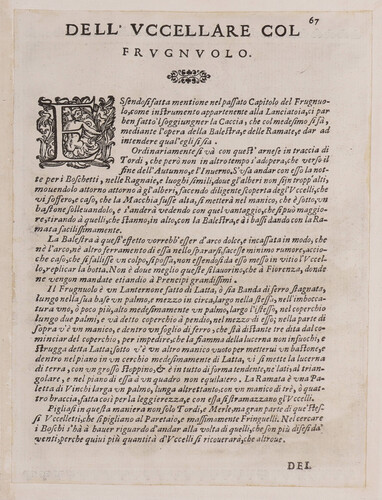 67
DELL' VCCELLARE COL
FRVGNVOLO.
ESsendosi fatta mentione nel passato Capitolo del Frugnuo-
lo, come instrumento appartenente alla Lanciatoia, ci par
ben fatto'l soggiungner la Caccia, che col medesimo si fà,
mediante l'opera della Balestra, e delle Ramate, e dar ad
intendere qual'egli si sia.
Ordinariamente si và con quest'arnese in traccia di
Tordi, che però non in altro tempo s'adopera, che verso il
fine dell'Autunno, e l'Inuerno, S'usa andar con esso la not-
te per i Boschetti, nelle Ragnaie, e luoghi simili, doue gl'alberi non sijn tropp'alti,
mouendolo attorno attorno à gl'alberi, facendo diligente scoperta degl'Vccelli, che
vi fossero, e caso, che la Macchia fusse alta, si metterà nel manico, che è sotto, vn
bastone solleuandolo, e s'anderà vedendo con quel vantaggio, che si può maggio-
re, tirando à quelli, che stanno, in alto, con la Balestra, e à i bassi dando con la Ra-
mata facilissimamente.
La Balestra à quest'effetto vorrebb'esser d'arco dolce, e incassata in modo, che
nè l'arco, nè altro ferramento di essa nello spararsi, facesse minimo rumore, accio-
che caso, che si fallisse vn colpo, si possa, non essendosi da esso messo in vitio l'Vccel-
lo, replicar la botta. Non è doue meglio queste si lauorino, che à Fiorenza, donde
ne vengon mandate etiandio à Principi grandissimi.
Il Frugnuolo è vn Lanternone fatto di Latta, ò sia Banda di ferro stagnato,
lungo nella sua base vn palmo, e mezzo in circa, largo nella stesso, nell'imboccà-
tura vno, ò poco più, alto medesimamente vn palmo, largo l'istesso, nel coperchio
lungo due palmi, e và detto coperchio à pendio, nel mezzo di esso; nella parte di
sopra v'è vn manico, e dentro vn foglio di ferro, che stà distante tre dita dal co-
minciar del coperchio, per impedire, che la fiamma della lucerna non infuochi, e
strugga detta Latta; sotto v'è vn altro manico vuoto per metterui vn bastone, e
dentro nel piano in vn cerchio medesimamente di Latta, vi si mette la lucerna
di terra, con vn grosso stoppino, & è in tutto di forma tendente, ne lati, al trian-
golare, e nel piano di essa à vn quadro non equilatero. La Ramata è vna Pa-
letta di Vinchi larga vn palmo, lunga altrettanto, con vn manico di trè, ò quat-
tro braccia, fatta così per la leggerezza, e con essa si stramazzano gl'Vccelli.
Pigliasi in questa maniera non solo Tordi, e Merle, ma gran parte di que'stes-
si Vccelletti, che si pigliano al Paretaio, e massimamente Fringuelli. Nel cercare
i Boschi s'hà à hauer riguardo d'andar alla volta di quelli, che son più difesi da'
venti; perche quiui più quantità d'Vccelli si ricouerarà, che altroue.
DEL